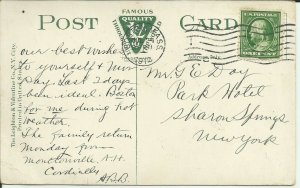 FAMOUS
POST CARD
QUALITY
MASS.
1912
our best wishes
to yourself & Miss
Day. Last 2 days
been ideal. Boston
for me during hot
weather.
The family return
Monday from
Moultonville, N.H.
Cordially
Mr G E Day
Park Hotel
Sharon Springs
New York
The Leighton & Valentine Co., N.Y. City.